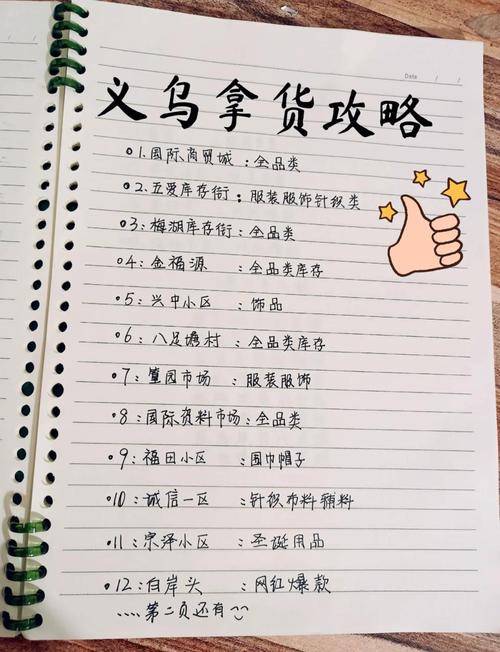 Date / /
义乌拿货攻略
01.国际商贸城:全品类
02.五爱库存街:服装服饰针织类
03:梅湖库存街:全品类
04:金福源:全品类库存
05:兴中小区:饰品
06:八足塘村:全品类库存
07:篁园市场:服装服饰
08:国际资料市场:全品类
09:福田小区:围巾帽子
010:诚信一区:针织布料辅料
011:宗泽小区:圣诞用品
012:白岸头:网红爆款
....第二页还有